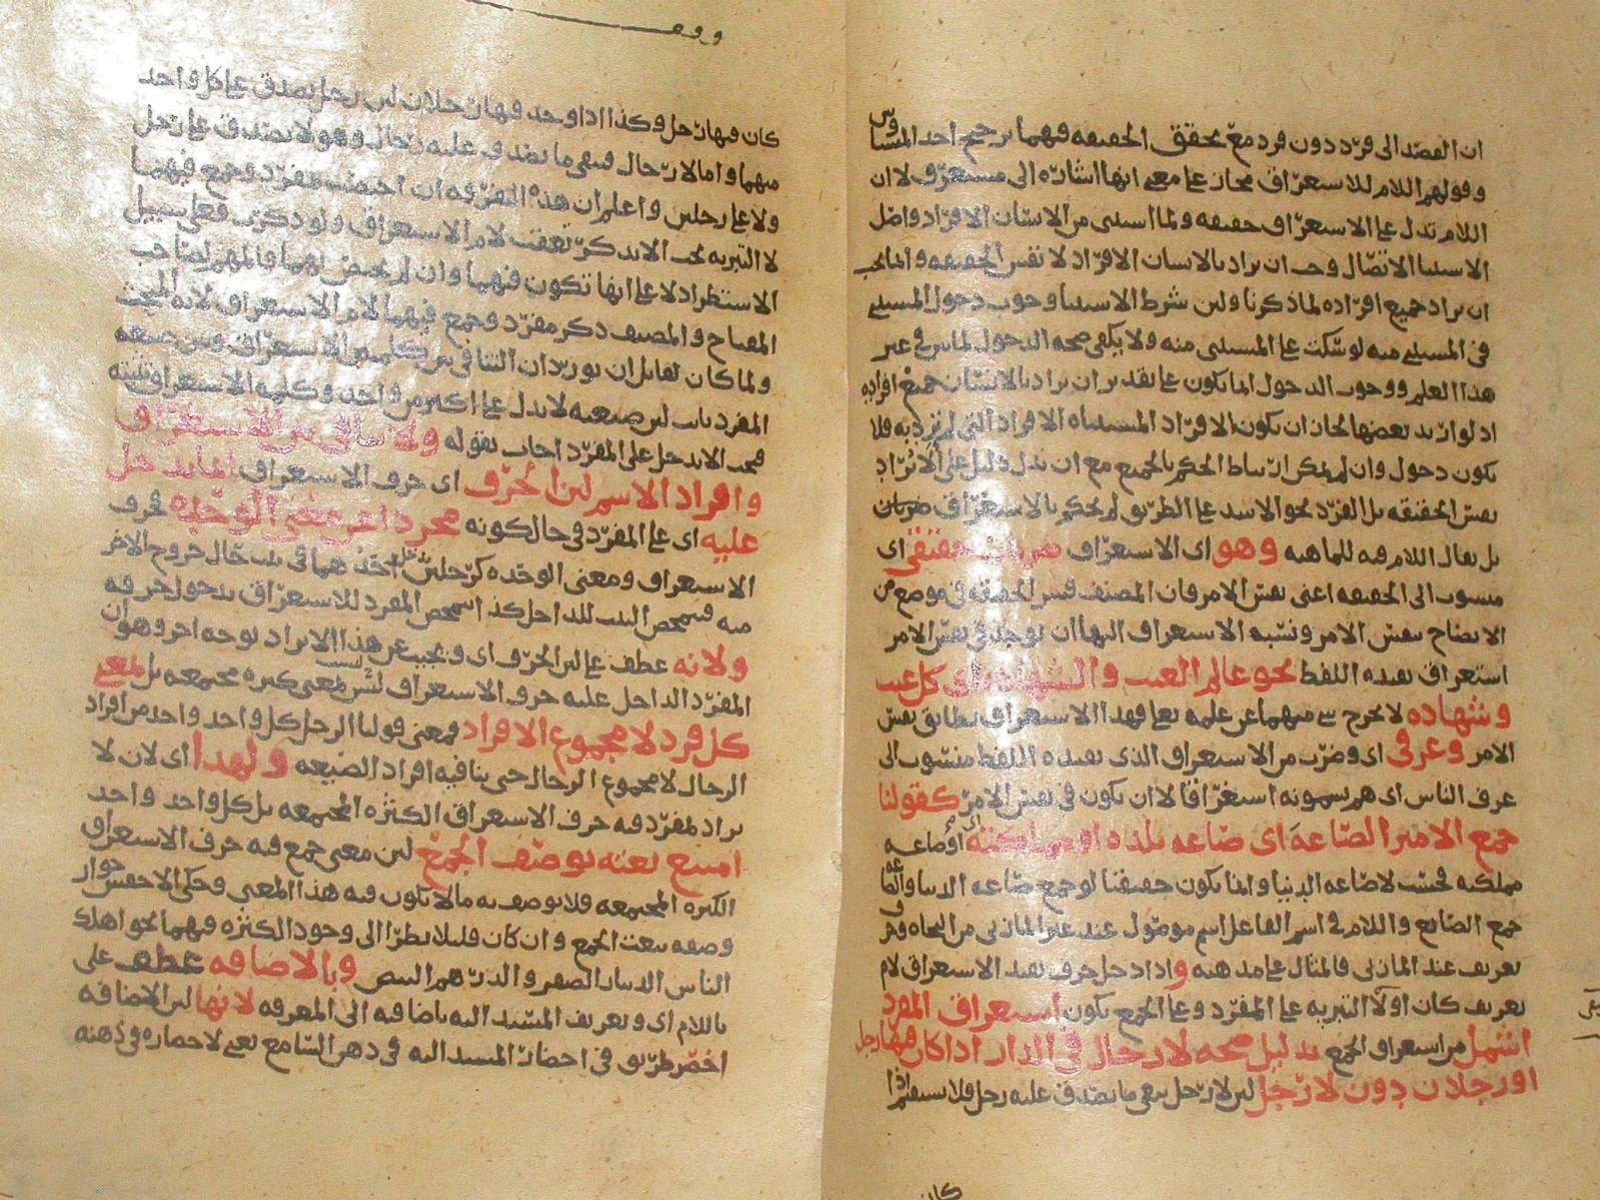 ان القصد الى فرد دون فرد مع تحقق الحقيقه فيهما ترجيح احد المتساويين
وقولهم اللام للاستغراق مجاز على معنى انها اشاره الى مستغرق لا ان
اللام تدل على الاستغراق حقيقه ولما استثنى من الانسان الافراد واصل
الاستثنا الاتصال وجب ان يراد بالانسان الافراد لا نفس الحقيقه وانما يجب
ان يراد جميع افراده لما ذكرنا ولين شرط الاستثنا وجوب دخول المستثنى
فى المستثنى منه لو سكت على المستثنى منه ولا يكفى صحه الدخول لما بين فى غير
هذا العلم ووجوب الدخول انما يكون على تقدير ان يراد بالانسان جميع افراده
اذ لو اريد بعضها لجاز ان يكون الافراد المستثناه الافراد التى لم تزد به فلا
يكون دخول وان لم يمكن ارتباط الحكم بالجميع مع ان يدل دليل على الا يراد
نفس الحقيقه بل الفرد نحو الاسد على الطريق لم يحكم بالاستغراق
بل يقال اللام فيه للماهيه وهو اى الاستغراق ضربان حقيقى اى
منسوب الى الحقيقه اعنى نفس الامر فان المصنف فسر الحقيقه فى موضع من
الايضاح بنفس الامر ونسبه الاستغراق اليها ان يوجد فى نفس الامر
استغراق يفيده اللفظ نحو عالم الغيب والشهاده اى كل غيب
وشهاده لا يخرج شى منهما عن علمه تعالى فهذا الاستغراق يطابق نفس
الامر وعرفى اى وضرب من الاستغراق الذى يفيده اللفظ منسوب الى
عرف الناس اى هم يسمونه استغراقا لا ان يكون فى نفس الامر كقولنا
جمع الامير الصاغه اى صاغه بلده او مملكته اى او صاغه
مملكته فحسب لا صاغه الدنيا وانما يكون حقيقيا لو جمع صاغه الدنيا والصاغه
جمع الصايغ واللام فى اسم الفاعل اسم موصول عند غير المازنى من النحاه وحرف
تعريف عند المازنى فالمثال على مذهبه واذا دخل حرف يفيد الاستغراق لام
تعريف كان او لا التبريه على المفرد وعلى الجمع يكون استغراق المفرد
اشمل من استغراق الجمع بدليل صحه لا رجال فى الدار اذا كان فيها رجل
او رجلان دون لا رجل لين لا رجل ينفى ما يصدق عليه رجل فلا يستقيم اذا
كان
وقف
كان فيها رجل وكذا اذا وجد فيها رجلان لين رجل يصدق على كل واحد
منهما واما لا رجال فينفى ما يصدق عليه رجال وهو لا يصدق على رجل
ولا على رجلين واعلم ان هذه التفرقه ان اختصت بمفرد وجمع فيهما
لا التبريه لم يجب الا يذكر تعقيب لام الاستغراق ولو ذكرت فعلى سبيل
الاستطراد لا على انها تكون فيهما وان لم يختص بهما فالمهم لصاحب
المفتاح والمصنف ذكر مفرد وجمع فيهما لام الاستغراق لانه المبحث
ولما كان لقايل ان يورد ان التنافى بين كلمتى الاستغراق وبين صيغه
المفرد ثابت لين صيغته لا يدل على اكثر من واحد وكلمه الاستغراق تثبته
فيجب الا يدخل على المفرد اجاب بقوله ولا تنافى بين الاستغراق
وافراد الاسم لين الحرف اى حرف الاستغراق انما يدخل
عليه اى على المفرد فى حال كونه مجردا عن معنى الوحده لحرف
الاستغراق ومعنى الوحده كرجلين يدخل احدهما فى بيت حال خروج الاخر
منه فيتمحض البيت للداخل كذا يتمحض المفرد للاستغراق بدخول حرفه
ولانه عطف على لين الحرف اى ويجيب عن هذا الايراد بوجه اخر وهو ان
المفرد الداخل عليه حرف الاستغراق ليس بمعنى كثره مجتمعه بل بمعنى
كل فرد لا مجموع الافراد فمعنى قولنا الرجل كل واحد واحد من افراد
الرجال لا مجموع الرجال حتى ينافيه افراد الصيغه ولهذا اى لان لا
يراد بمفرد فيه حرف الاستغراق الكثره المجتمعه بل كل واحد واحد
امتنع نعته بوصف الجمع لين معنى جمع فيه حرف الاستغراق
الكثره المجتمعه فلا يوصف به ما لا يكون فيه هذا المعنى وحكى الاخفش جواز
وصفه بنعت الجمع وان كان قليلا نظرا الى وجود الكثره فيهما نحو اهلك
الناس الدينار الصفر والدرهم البيض وبالاضافه عطف على
باللام اى وتعريف المسند اليه باضافته الى المعرفه لانها لين الاضافه
اخصر طريق فى احضار المسند اليه فى ذهن السامع يعنى لاحضاره فى ذهنه